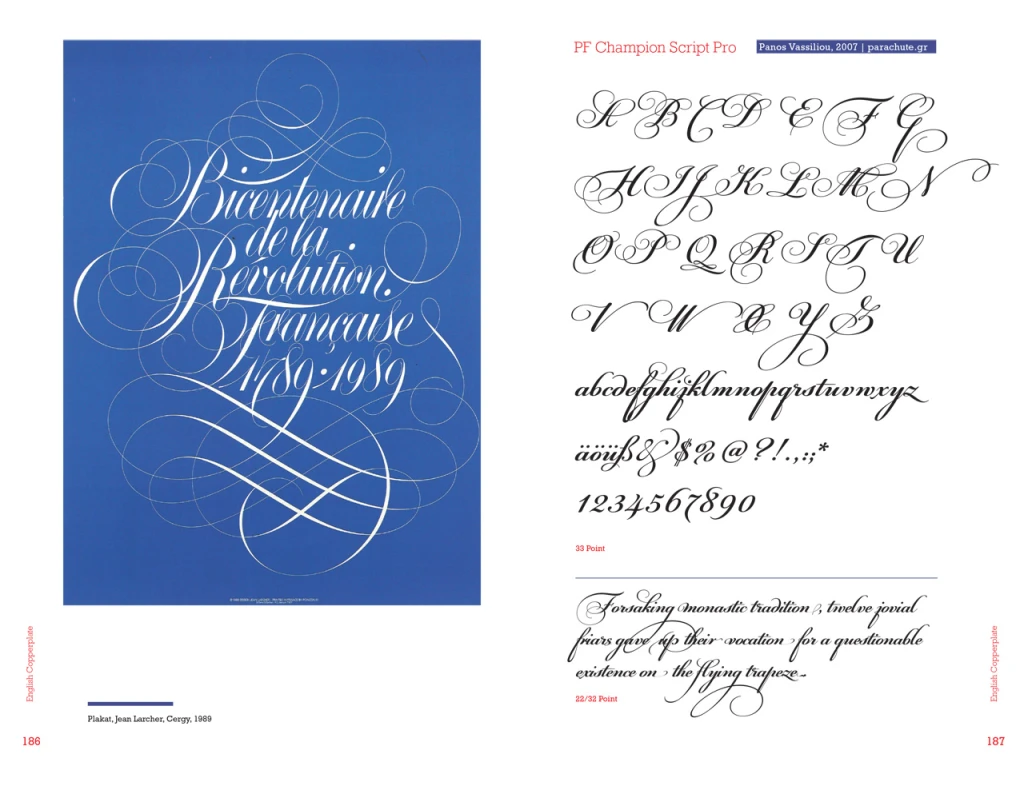 Bicentenaire
de la
Révolution
Française
1789·1989
Plakat, Jean Larcher, Cergy, 1989
English Copperplate
186
PF Champion Script Pro
Panos Vassiliou, 2007 | parachute.gr
A B C D E F G
H I J K L M N
O P Q R S T U
V W X Y Z
abcdefghijklmnopqrstuvwxyz
äöüß&$%@?!.,:;*
1234567890
33 Point
Forsaking monastic tradition, twelve jovial
friars gave up their vocation for a questionable
existence on the flying trapeze.
22/32 Point
English Copperplate
187